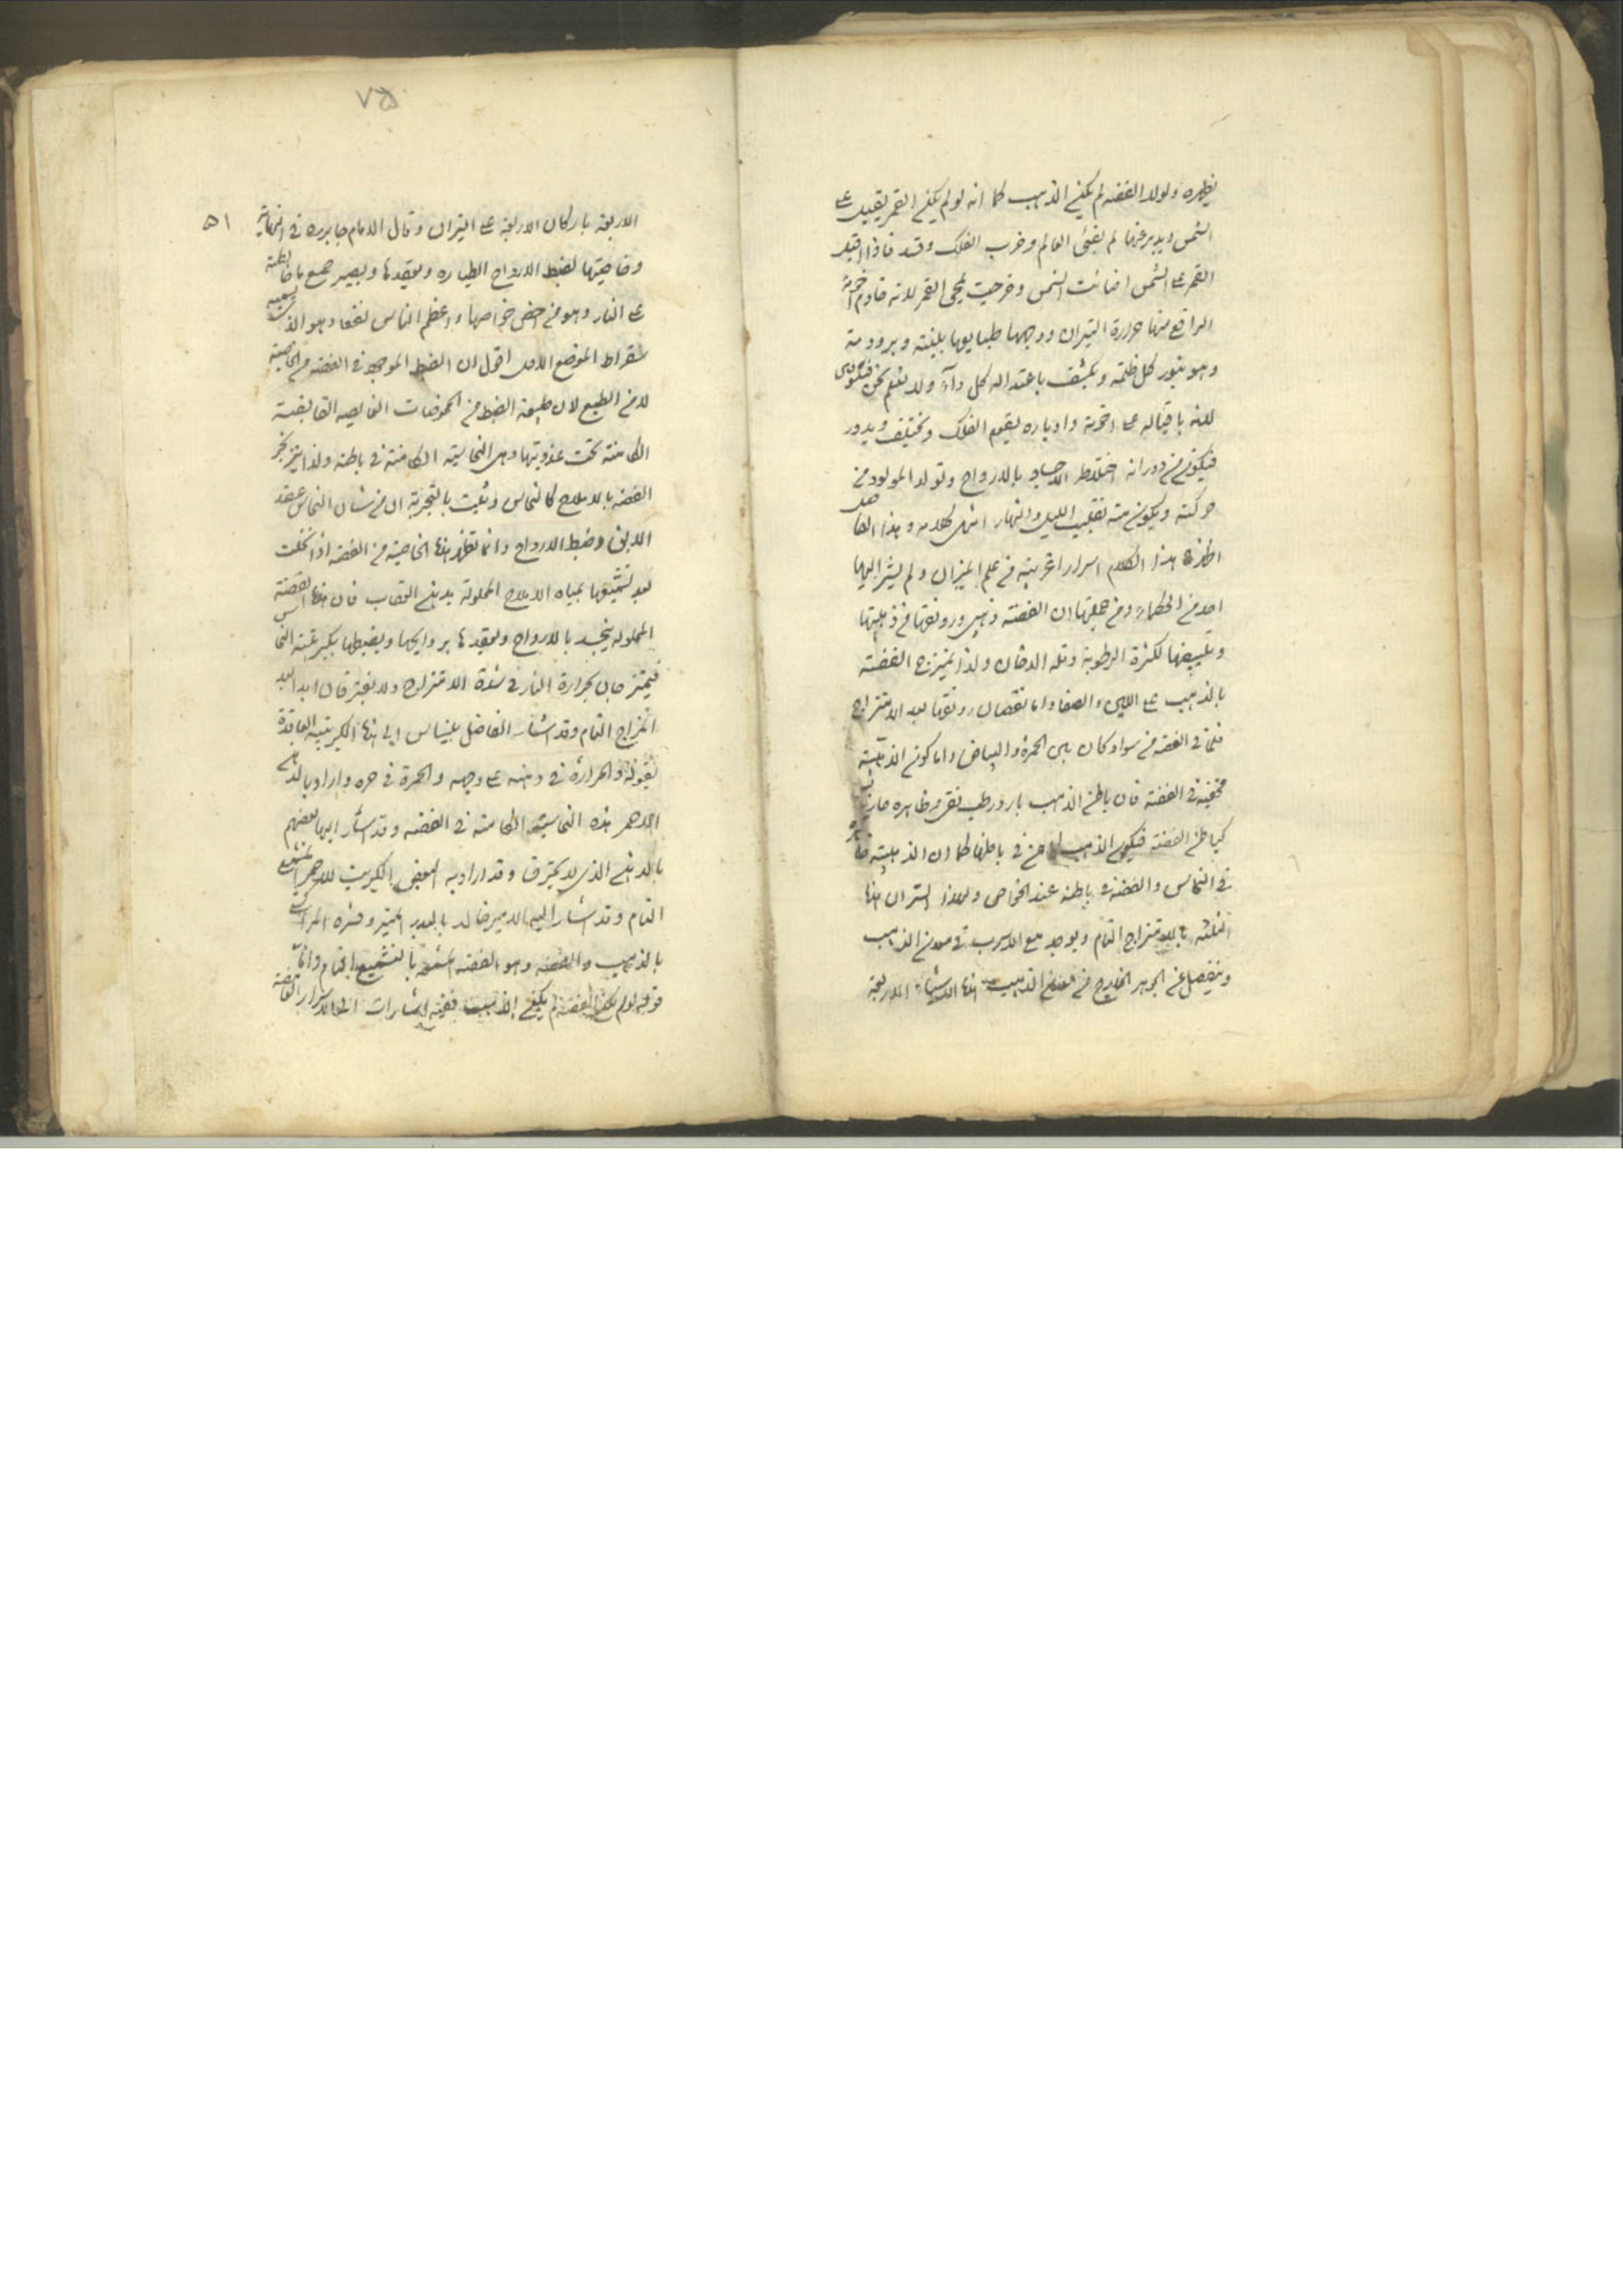 يظهره ولولا الفضه لم يكن الذهب كما انه لو لم يكن القمر يقبل على
الشمس ويدبر عنها لم يضئ العالم وخرب الفلك وفسد فاذا اقبل
القمر على الشمس اضائت الشمس وفرحت بمجئ القمر لانه خادم اخوته
الرافع منها حرارة النيران ووجهها طبايعها بلينته وبرودته
وهو ينور كل ظلمة ويكشف باعتداله كل داء ولا نعلم نحن
لانه باقباله على اخوته وادباره يقوم الفلك ويختلف ويدور
فيكون من دورانه اختلاط الاجساد بالارواح وتولد المولود من
حركته ويكون منه تقليب الليل والنهار انتهى كلامه وهذا الفاضل
اظهر في هذا الكلام اسرارا غريبة في علم الميزان ولم يشر اليها
احد من الحكماء ومن جملتها ان الفضة ذهب ورونقها من ذهبيتها
وتبييضها لكثرة الرطوبة وقلة الدخان ولذا يمتزج الفضة
بالذهب على اللين والصفا واما نقصان رونقها بعد الامتزاج
فلما في الفضه من سواد كان بين الحمرة والبياض واما كون الذهبية
مخفية في الفضة فان باطن الذهب بارد رطب نقي وظاهره حار يابس
كباطن الفضة فيكون الذهب في باطنها كما ان الذهبية
في النحاس والفضة في باطنه عند الخواص ولهذا السر ان هذه
الثلثه بالامتزاج التام ويوجد مع الاسرب في معدن الذهب
وينفصل عن الجوهر الخارج من معدن الذهب هذه الاشياء الاربعة
٧٥
٥١
الاربعة باركان الاربعة على النيران وقال الامام جابر ره في الخمائر
وخاصيتها لضبط الارواح الطياره وبعقدها ويصير جميع ما خالطته
على النار وهو من اخص خواصها واعظم الناس نفعا وهو الذي يسميه
سقراط الموضع الاول اقول ان الضبط الموجود في الفضه من الخاصية
لا من الطبع لان طبيعة الضبط من الحموضات القابضة
الكامنة تحت عذوبتها وهي النحاسية الكامنة في باطنه ولذا
الفضه بالاملاح كالنحاس وثبت بالتجربة ان من شان النحاس عقد
الابق وضبط الارواح وانما تظهر هذه الخاصية من الفضه اذا انحلت
بعد تشميعها بمياه الاملاح المحلولة بدهن العقاب فان هذه الفضة
المحلوله يتجسد بالارواح وتعقدها بروايحها ويضبطها بكبريتية النحاس
فيمتزجان بحرارة النار في شدة الامتزاج ولا يفترقان ابدا بعد
المزاج التام وقد اشار الفاضل بليناس الى هذه الكبريتية العاقدة
بقوله والحرارة في دهنه على وجهه والحمرة في حره واراد بالدهن
الاحمر هذه النحاسية الكامنة في الفضه وقد اشار اليها بعضهم
بالدهن الذي لا يحترق وقد اراد به البعض الكبريت الاحمر
التام وقد اشار اليها الامير خالد بالبدر المنير وفسره المراكشي
بالذهب والفضه وهو الفضة المشمعة بالتشميع التام واما
قوله لو لم يكن الفضة لم يكن الذهب ففيه اشارات الى الاسرار الغامضة